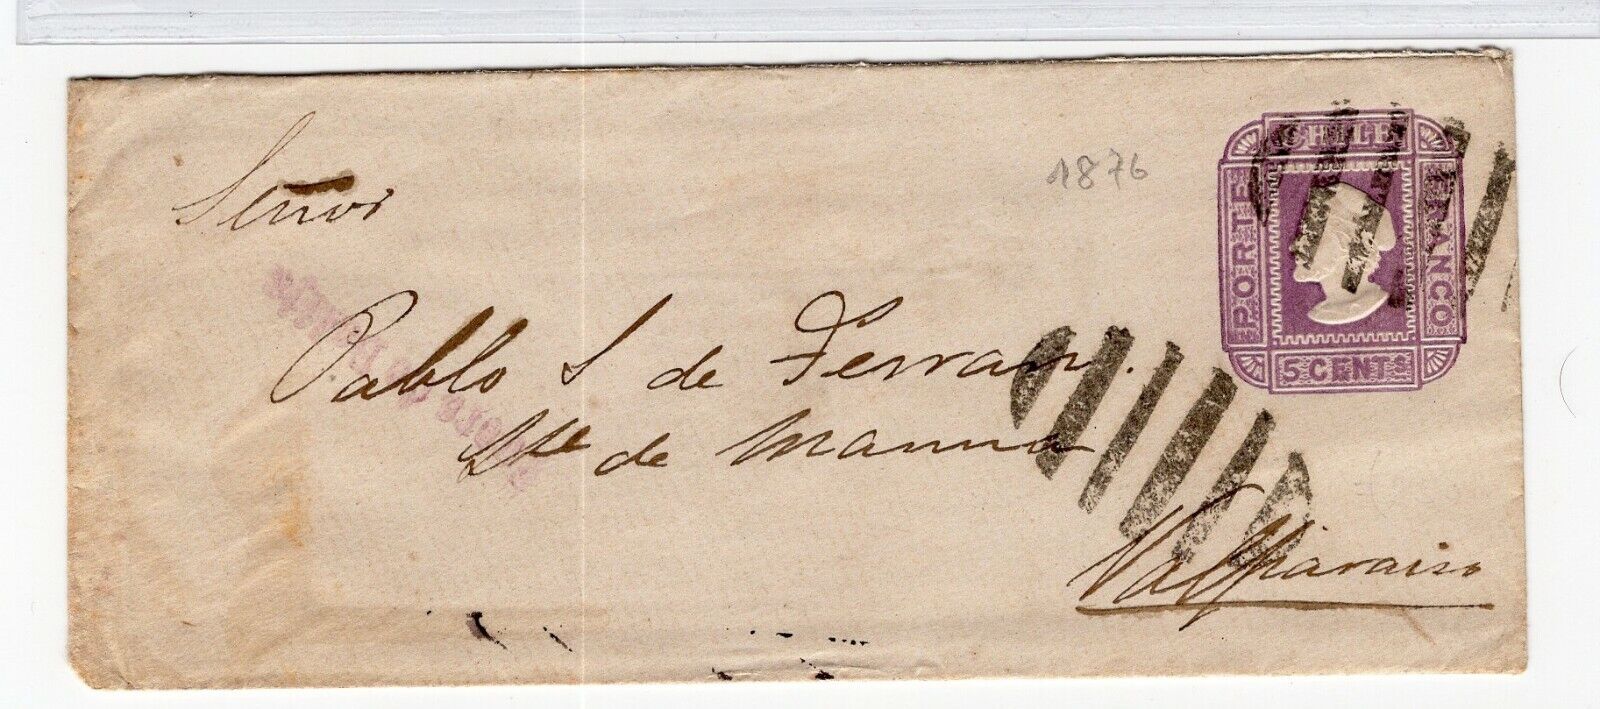 1876
CHILE
PORTE
FRANCO
5 CENTS
Señor
Pablo S de Ferrari.
Mte de marina
Valparaiso